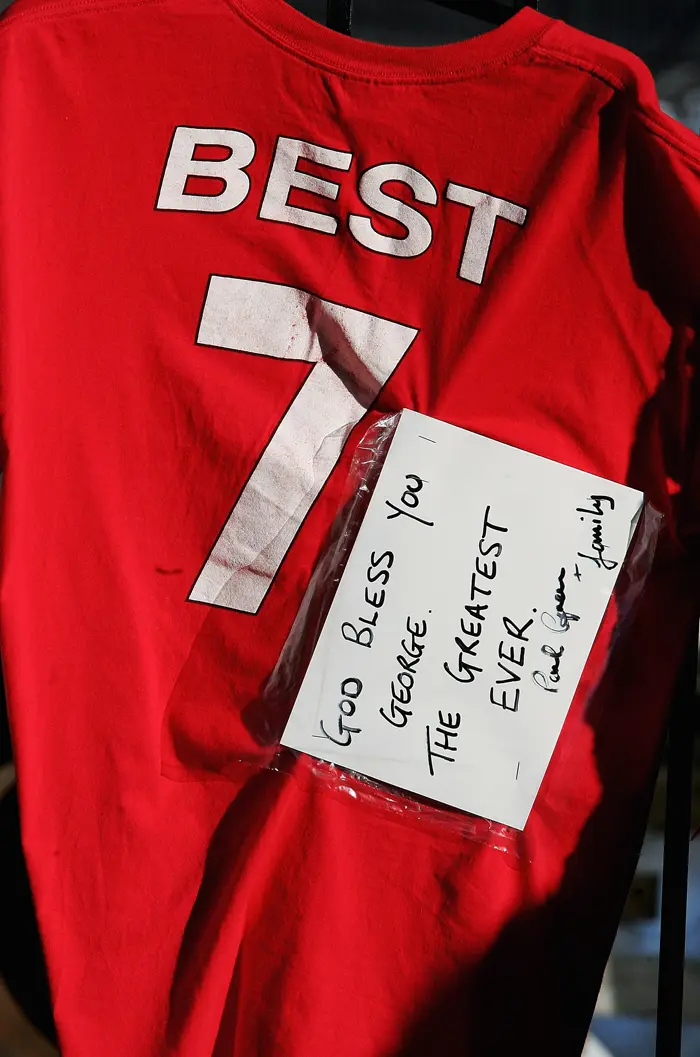 BEST
7
GOD BLESS YOU
GEORGE.
THE GREATEST
EVER.
Paul Green +
family